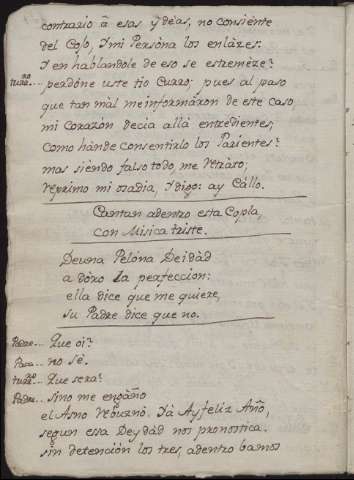 contrario â esas ydéas, no consiente
del Cojo, I mi Persòna los enlàzes.
I en hablandole de eso se estremèze?
tuno... perdòne uste tio Curro; pues al paso
que tan màl meinformàron de este caso
mi Corazòn decia allà entredientes;
Como hànde consentirlo los Parientes?
mas sièndo falso todo, me retràto;
reprimo mi osadia, I digo: ay Cállo.
Cantan adentro esta Copla,
con Misica triste.
Deuna Pelòna Deidàd
a dòro la perfeccion:
ella dice que me quiere,
su Padre dice que no.
Padre... Que oi?
no sè.
tuno... Que sera?
Padre... sino me engáño
el Asno reburnò. Ià Ay feliz Año,
segun essa Deydàd nos pronostica.
sin detenciòn los tres, adentro bamos